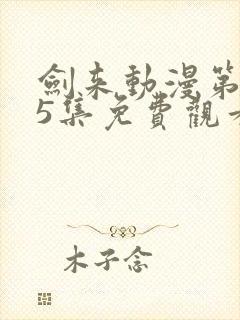 劍来動漫第
5集免費觀
木子念